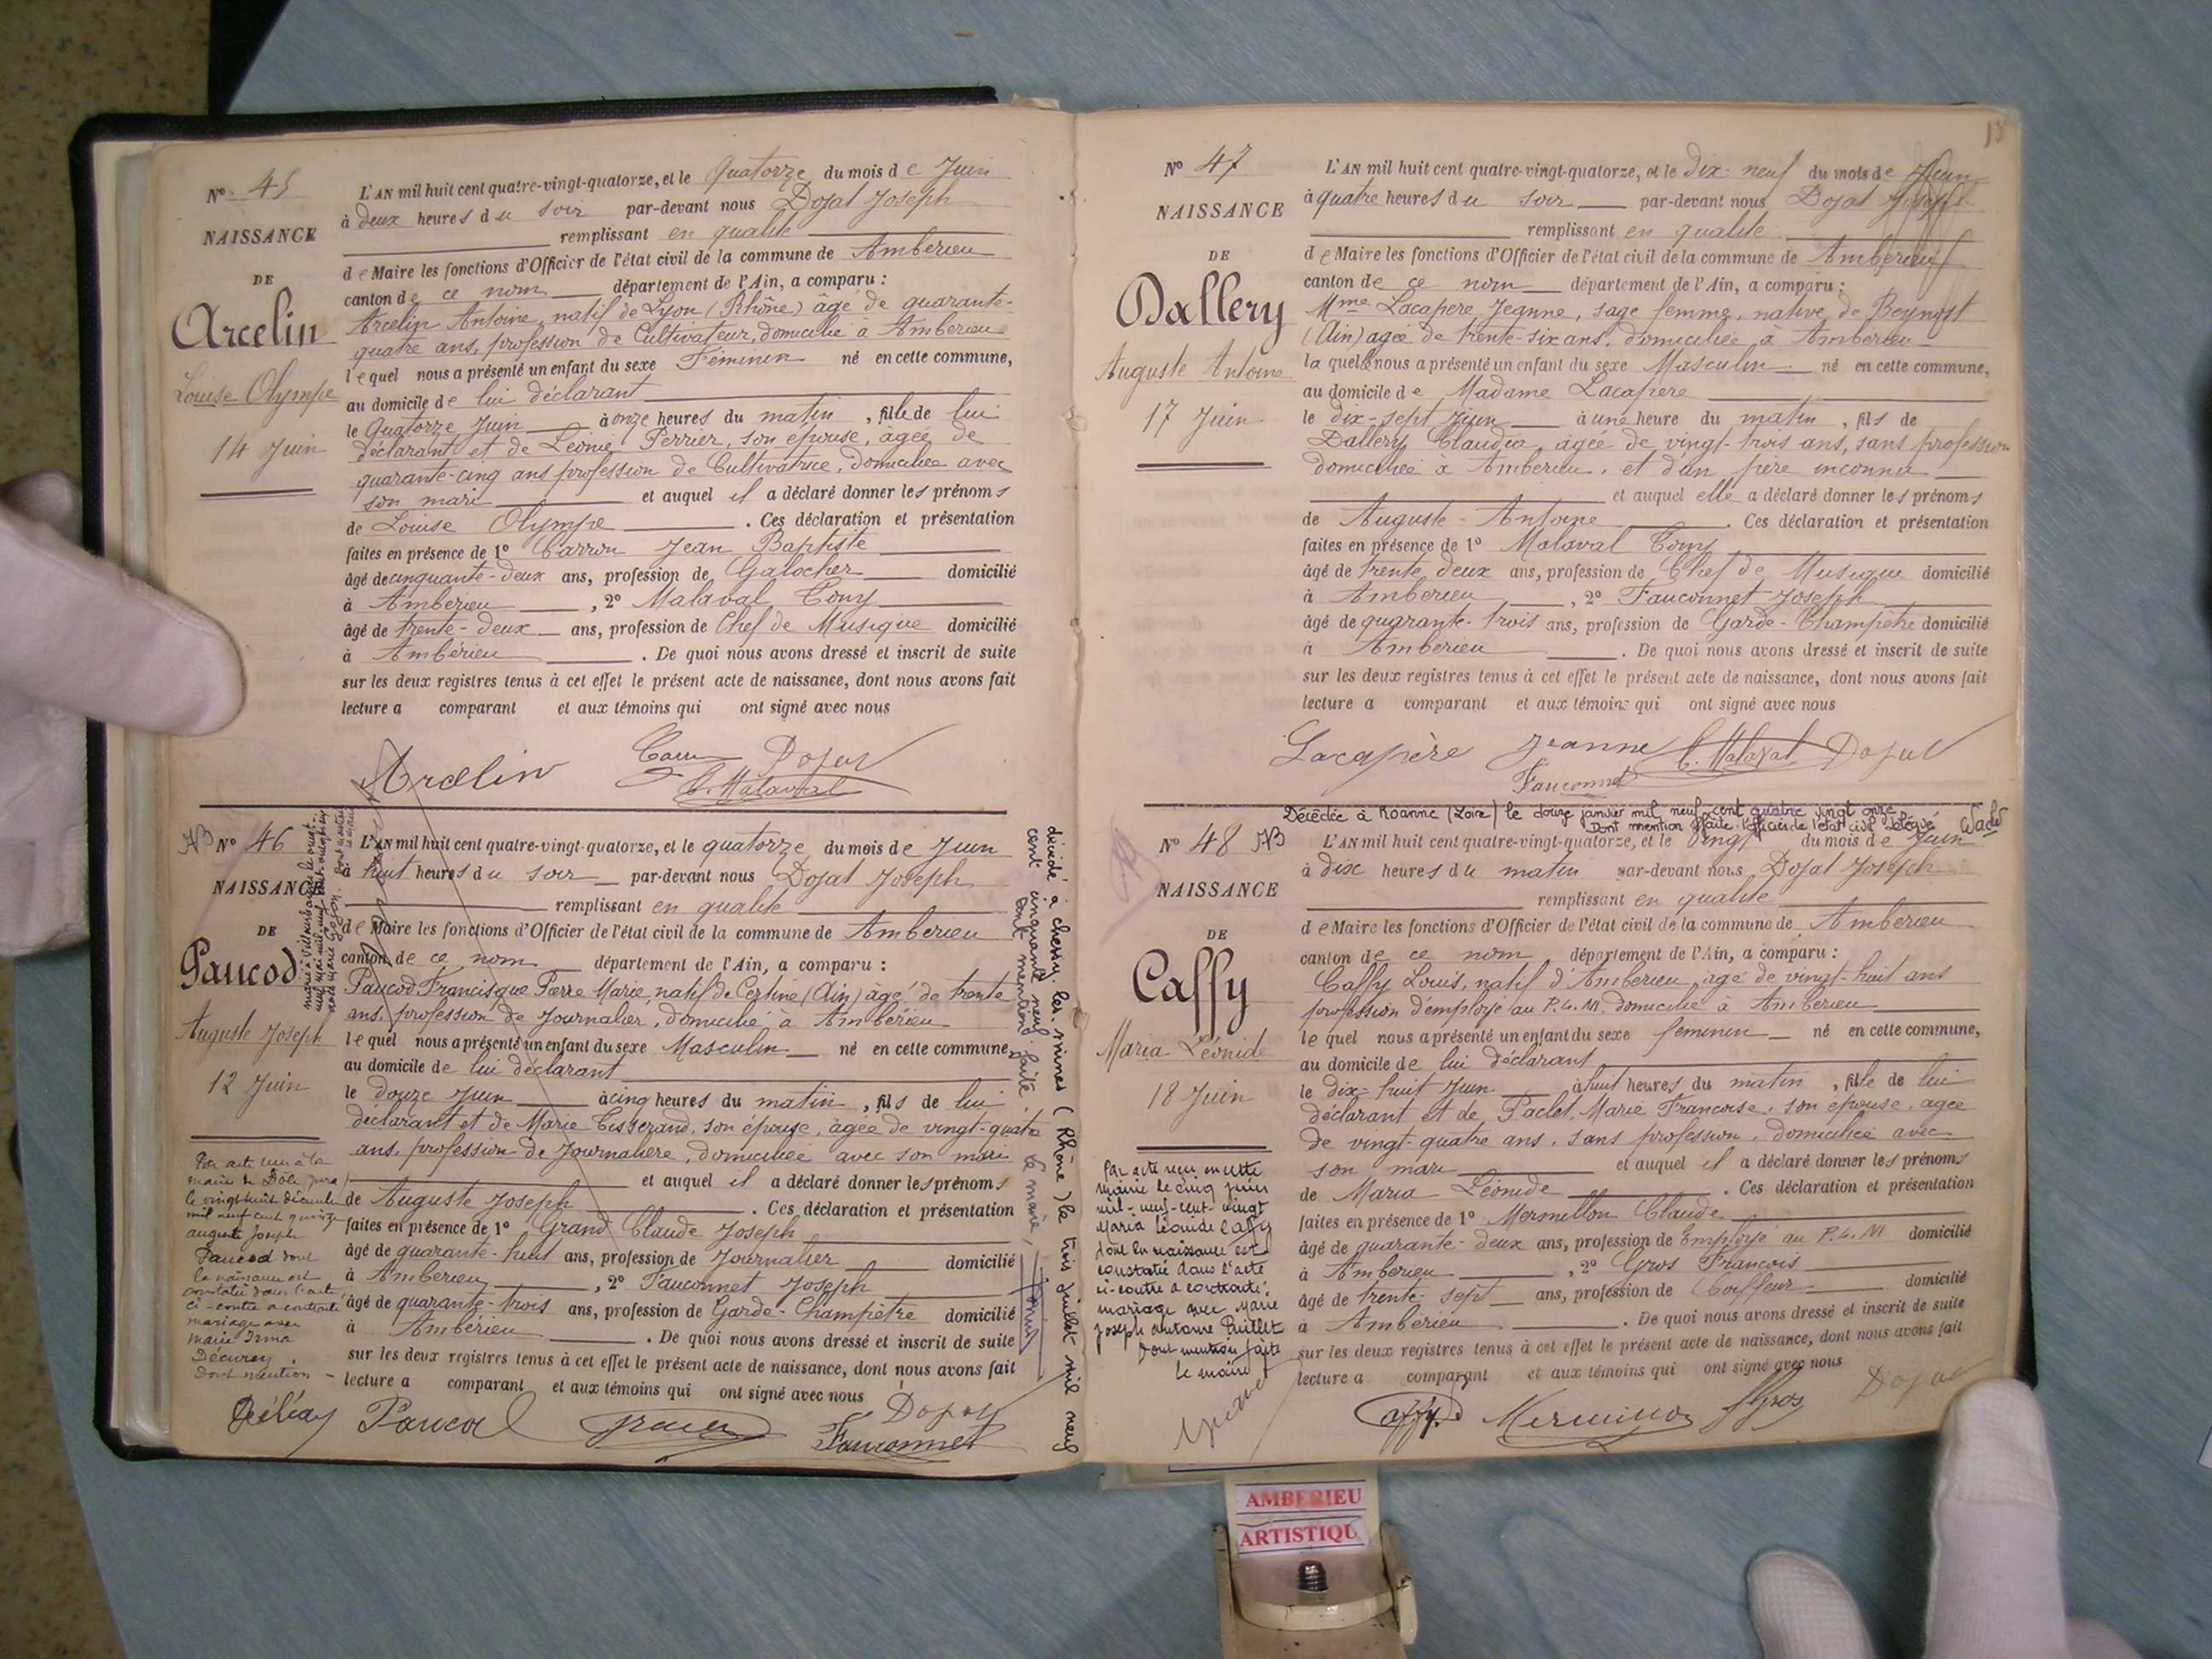 Nº 45
NAISSANCE
DE
Arcelin
Louise Olympe
14 Juin
L'AN mil huit cent quatre-vingt-quatorze, et le Quatorze du mois de Juin
à deux heures du soir par-devant nous Dojat Joseph
remplissant en qualité
de Maire les fonctions d'Officier de l'état civil de la commune de Ambérieu
canton de ce nom département de l'Ain, a comparu :
Arcelin Antoine, natif de Lyon (Rhône) âgé de quarante-
quatre ans, profession de Cultivateur, domicilié à Ambérieu
lequel nous a présenté un enfant du sexe Féminin né en cette commune,
au domicile de lui déclarant
le Quatorze Juin à onze heures du matin, fille de lui
déclarant et de Léonie Perrier, son épouse, âgée de
quarante-cinq ans profession de Cultivatrice, domiciliée avec
son mari et auquel il a déclaré donner les prénoms
de Louise Olympe. Ces déclaration et présentation
faites en présence de 1º Carron Jean Baptiste
âgé de cinquante-deux ans, profession de Galocher domicilié
à Ambérieu, 2º Malaval Tony
âgé de trente-deux ans, profession de Chef de Musique domicilié
à Ambérieu. De quoi nous avons dressé et inscrit de suite
sur les deux registres tenus à cet effet le présent acte de naissance, dont nous avons fait
lecture a comparant et aux témoins qui ont signé avec nous
Arcelin Dojat
T. Malaval
Nº 46
NAISSANCE
DE
Paucod
Auguste Joseph
12 Juin
L'AN mil huit cent quatre-vingt-quatorze, et le quatorze du mois de Juin
à huit heures du soir par-devant nous Dojat Joseph
remplissant en qualité
de Maire les fonctions d'Officier de l'état civil de la commune de Ambérieu
canton de ce nom département de l'Ain, a comparu :
Paucod Francisque Pierre Marie, natif de Certine (Ain) âgé de trente
ans, profession de Journalier, domicilié à Ambérieu
lequel nous a présenté un enfant du sexe Masculin né en cette commune,
au domicile de lui déclarant
le douze Juin à cinq heures du matin, fils de lui
déclarant et de Marie Tisserand, son épouse, âgée de vingt-quatre
ans, profession de Journalière, domiciliée avec son mari
et auquel il a déclaré donner les prénoms
de Auguste Joseph. Ces déclaration et présentation
faites en présence de 1º Grand Claude Joseph
âgé de quarante-huit ans, profession de Journalier domicilié
à Ambérieu, 2º Fauconnet Joseph
âgé de quarante-trois ans, profession de Garde-Champêtre domicilié
à Ambérieu. De quoi nous avons dressé et inscrit de suite
sur les deux registres tenus à cet effet le présent acte de naissance, dont nous avons fait
lecture a comparant et aux témoins qui ont signé avec nous
Paucod Dojat
Fauconnet
Par acte reçu à la
mairie de Dôle (Jura)
le vingt huit décembre
mil neuf cent quinze
auguste Joseph
Paucod dont
la naissance est
constatée dans l'acte
ci-contre a contracté
mariage avec
Marie Irma
Décurey.
Dont mention
décédé à chessy les mines (Rhône) le trois juillet mil neuf
cent cinquante neuf.
Dont mention faite.
le maire,
Nº 47
NAISSANCE
DE
Dallery
Auguste Antoine
17 Juin
L'AN mil huit cent quatre-vingt-quatorze, et le dix-neuf du mois de Juin
à quatre heures du soir par-devant nous Dojat Joseph
remplissant en qualité
de Maire les fonctions d'Officier de l'état civil de la commune de Ambérieu
canton de ce nom département de l'Ain, a comparu :
Mme Lacapère Jeanne, sage femme, native de Beynost
(Ain) agée de trente-six ans, domiciliée à Ambérieu
laquelle nous a présenté un enfant du sexe Masculin né en cette commune,
au domicile de Madame Lacapère
le dix-sept Juin à une heure du matin, fils de
Dallery Claudia, agée de vingt-trois ans, sans profession
domiciliée à Ambérieu, et d'un père inconnu
et auquel elle a déclaré donner les prénoms
de Auguste-Antoine. Ces déclaration et présentation
faites en présence de 1º Malaval Tony
âgé de trente deux ans, profession de Chef de Musique domicilié
à Ambérieu, 2º Fauconnet Joseph
âgé de quarante-trois ans, profession de Garde-Champêtre domicilié
à Ambérieu. De quoi nous avons dressé et inscrit de suite
sur les deux registres tenus à cet effet le présent acte de naissance, dont nous avons fait
lecture a comparant et aux témoins qui ont signé avec nous
Lacapère Jeanne T. Malaval Dojat
Fauconnet
Décédée à Roanne (Loire) le douze janvier mil neuf cent quatre vingt onze
Dont mention faite. l'officier de l'état civil délégué
Nº 48
NAISSANCE
DE
Caffy
Maria Léonide
18 Juin
L'AN mil huit cent quatre-vingt-quatorze, et le Vingt du mois de Juin
à dix heures du matin par-devant nous Dojat Joseph
remplissant en qualité
de Maire les fonctions d'Officier de l'état civil de la commune de Ambérieu
canton de ce nom département de l'Ain, a comparu :
Caffy Louis, natif d'Ambérieu, agé de vingt-huit ans
profession d'employé au P.L.M. domicilié à Ambérieu
lequel nous a présenté un enfant du sexe féminin né en cette commune,
au domicile de lui déclarant
le dix-huit Juin à huit heures du matin, fille de lui
déclarant et de Paclet Marie Françoise, son épouse, agée
de vingt-quatre ans, sans profession, domiciliée avec
son mari et auquel il a déclaré donner les prénoms
de Maria Léonide. Ces déclaration et présentation
faites en présence de 1º Mermillon Claude
âgé de quarante-deux ans, profession de Employé au P.L.M domicilié
à Ambérieu, 2º Gros François
âgé de trente-sept ans, profession de Coiffeur domicilié
à Ambérieu. De quoi nous avons dressé et inscrit de suite
sur les deux registres tenus à cet effet le présent acte de naissance, dont nous avons fait
lecture a comparant et aux témoins qui ont signé avec nous
Caffy Mermillon Gros Dojat
Par acte reçu en cette
mairie le cinq juin
mil-neuf-cent-vingt
Maria Léonide Caffy
dont la naissance est
constatée dans l'acte
ci-contre a contracté
mariage avec Marie
Joseph Antoine
Dont mention faite
Le maire
AMBERIEU
ARTISTIQU